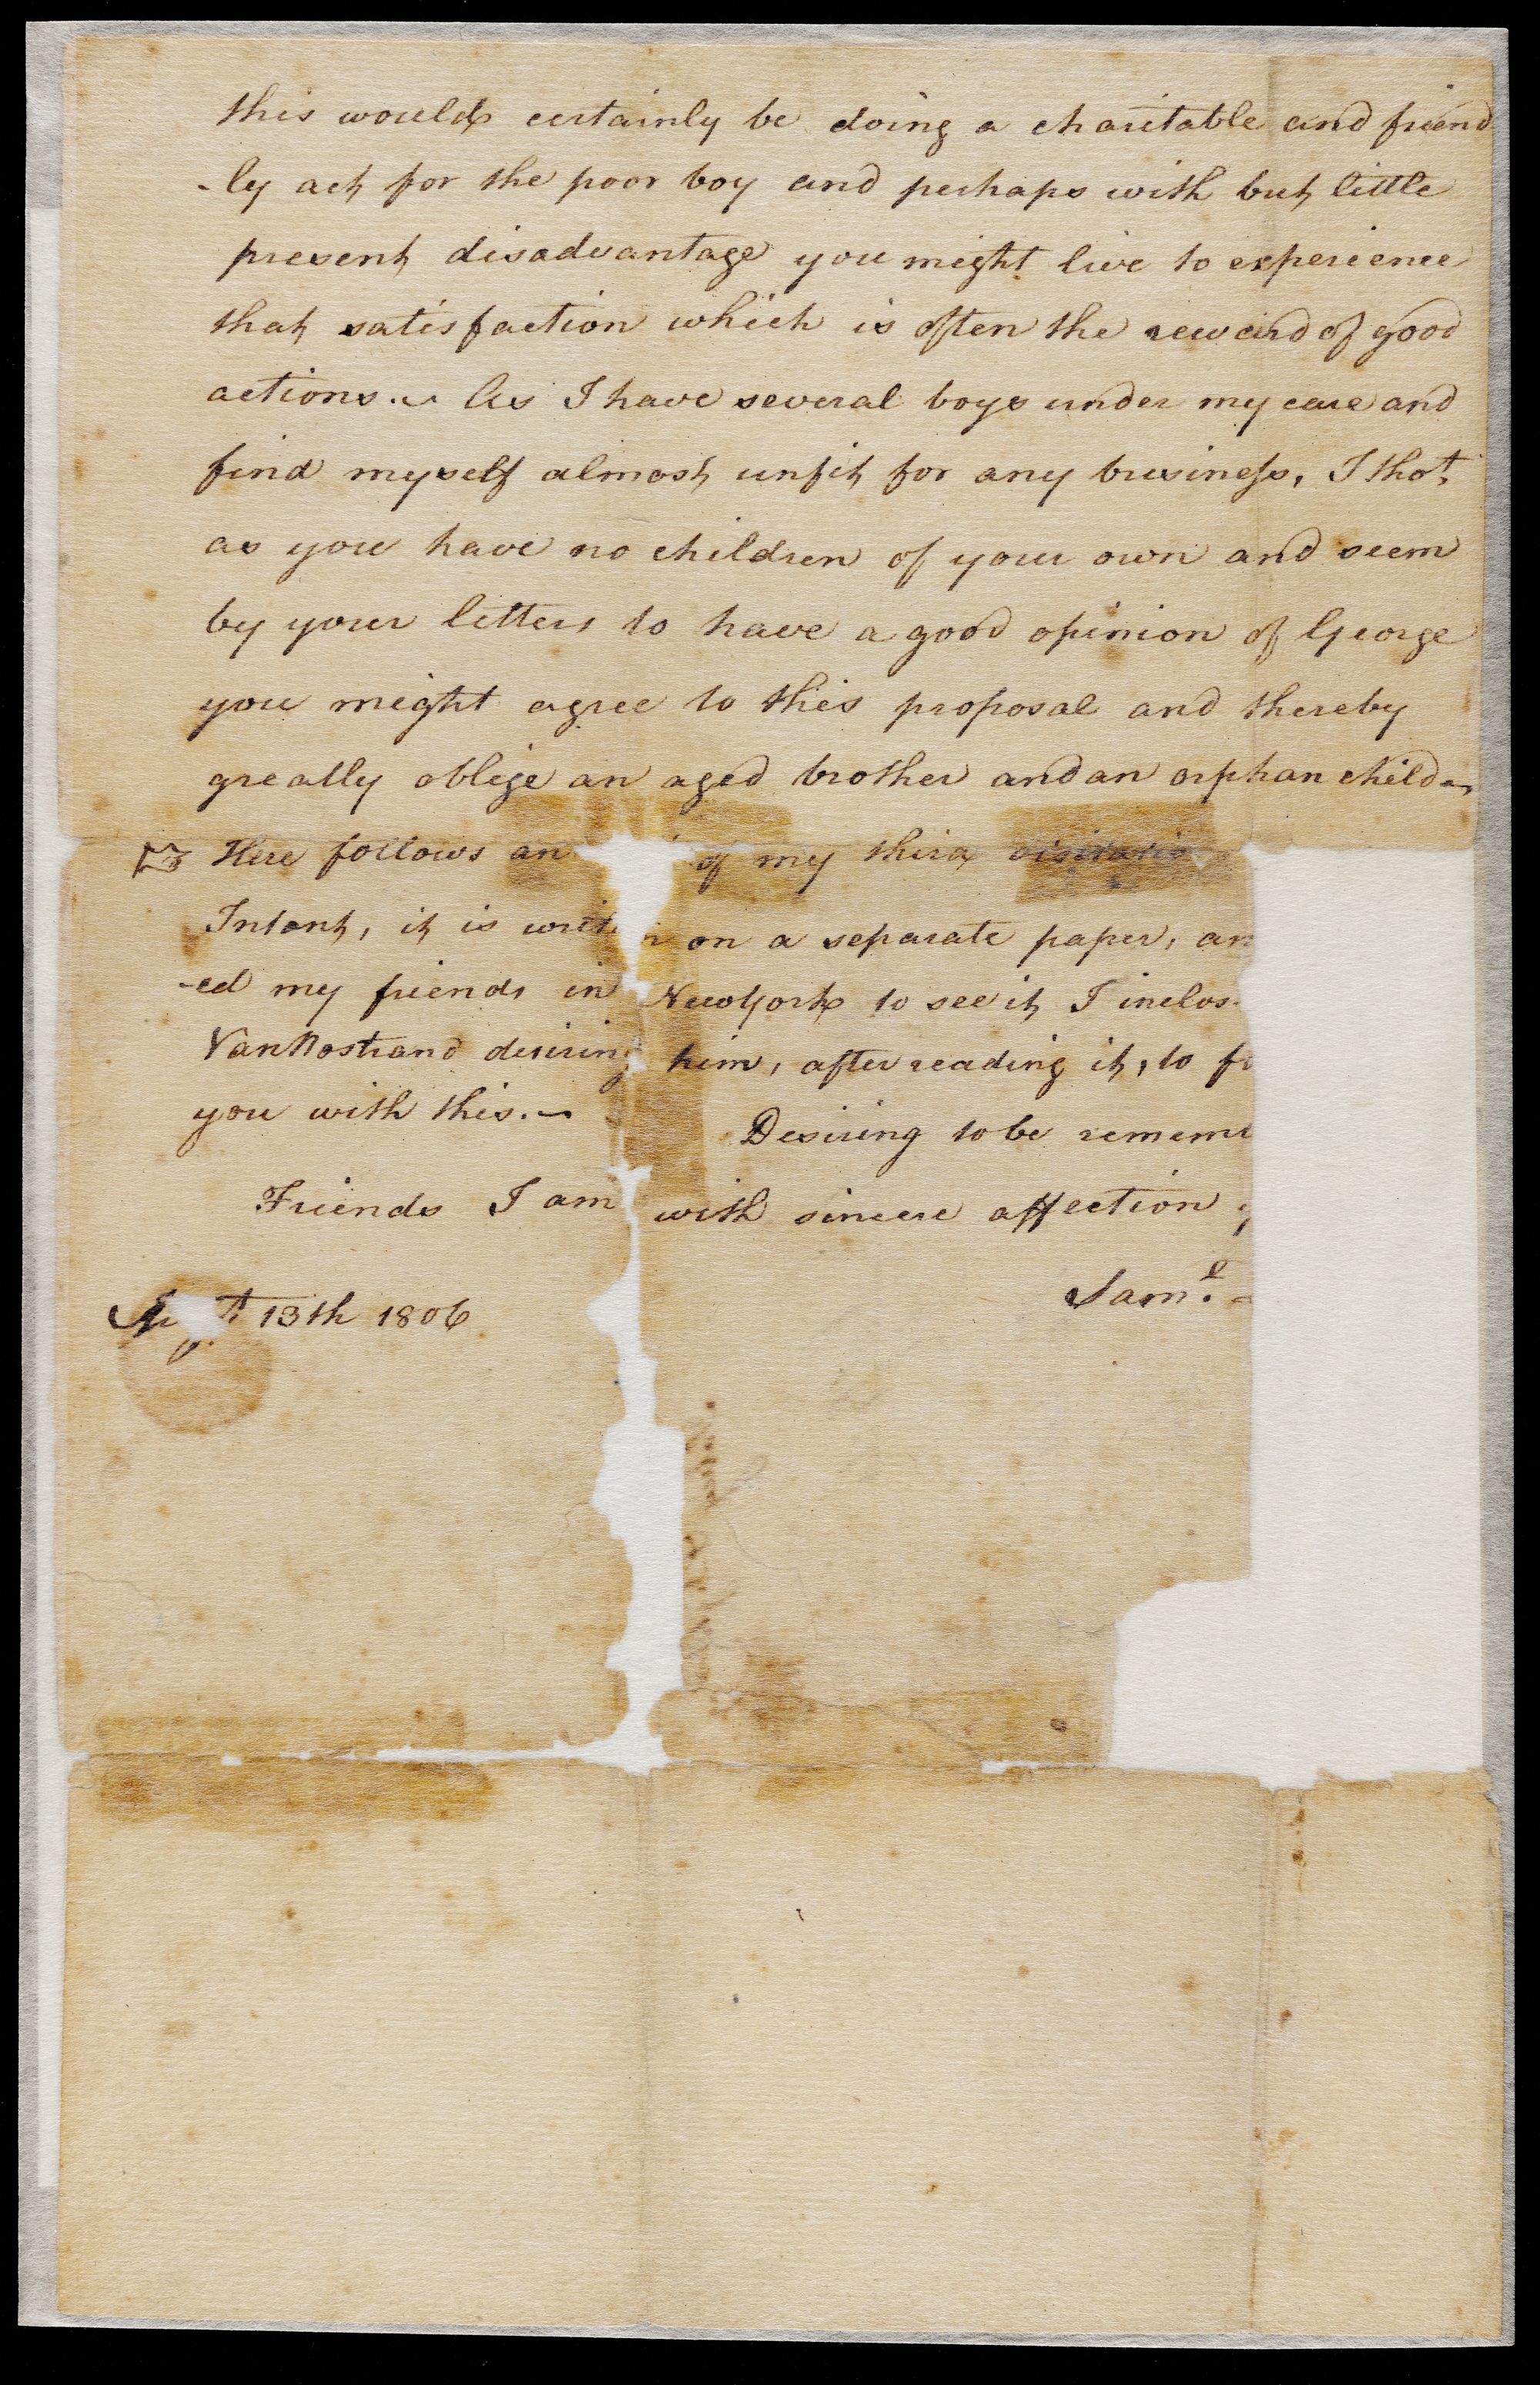 this would certainly be doing a charitable and friend
-ly act for the poor boy and perhaps with but little
present disadvantage you might live to experience
that satisfaction which is often the reward of good
actions. As I have several boys under my care and
find myself almost unfit for any business, I thot
as you have no children of your own and seem
by your letters to have a good opinion of George
you might agree to this proposal and thereby
greatly oblige an aged brother and an orphan child
Here follows an of my third visitatio
Intent, it is on a separate paper, an
-ed my friends in NewYork to see it, I inclos
VanNostrand desiring him, after reading it, to
you with this.
Desiring to be remem
Friends I am with sincere affection
Saml.
13th 1806